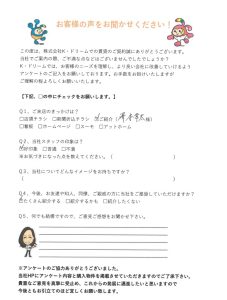 お客様の声をお聞かせください!
この度は、株式会社K・ドリームでの賃貸のご契約誠にありがとうございます。
当社でご案内の際、ご不満な点などはございませんでしたでしょうか?
K・ドリームでは、お客様のニーズを理解し、より良い会社に改善していけるよう
アンケートのご記入をお願いしております。お手数をお掛けいたしますが
ご理解の程よろしくお願いいたします。
【下記、□の中にチェックをお願いします。】
Q1、ご来店のきっかけは?
□店頭チラシ □新聞折込チラシ ☑ご紹介( 様)
□看板 □ホームページ □スーモ □アットホーム
Q2、当社スタッフの印象は?
☑好印象 □普通 □不満
※お気づきになった点を教えてください。(
)
Q3、当社についてどんなイメージをお持ちですか?
( )
Q4、今後、お友達や知人、同僚、ご親戚の方に当社をご推薦していただけますか?
☑たくさん紹介する □紹介するかも □紹介したくない
Q5、何でも結構ですので、ご意見ご感想をお聞かせ下さい。
※アンケートのご協力ありがとうございました。
当社HPにアンケート内容と購入物件を掲載させていただきますのでご了承下さい。
貴重なご意見を真摯に受止め、これからの発展に邁進したいと思いますので
今後ともお引立てのほど宜しくお願い致します。